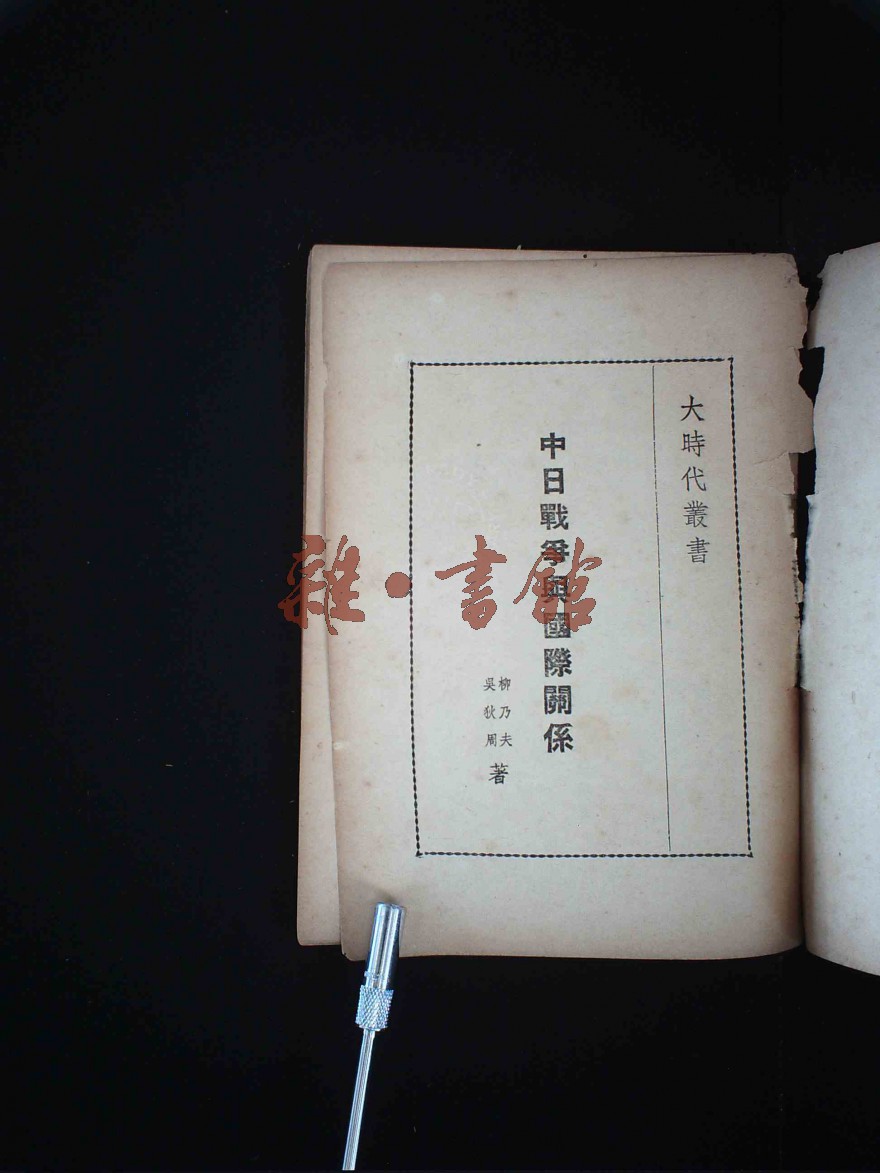 大時代叢書
中日戰爭與國際關係
柳乃夫
吳狄周
著
雜·書館